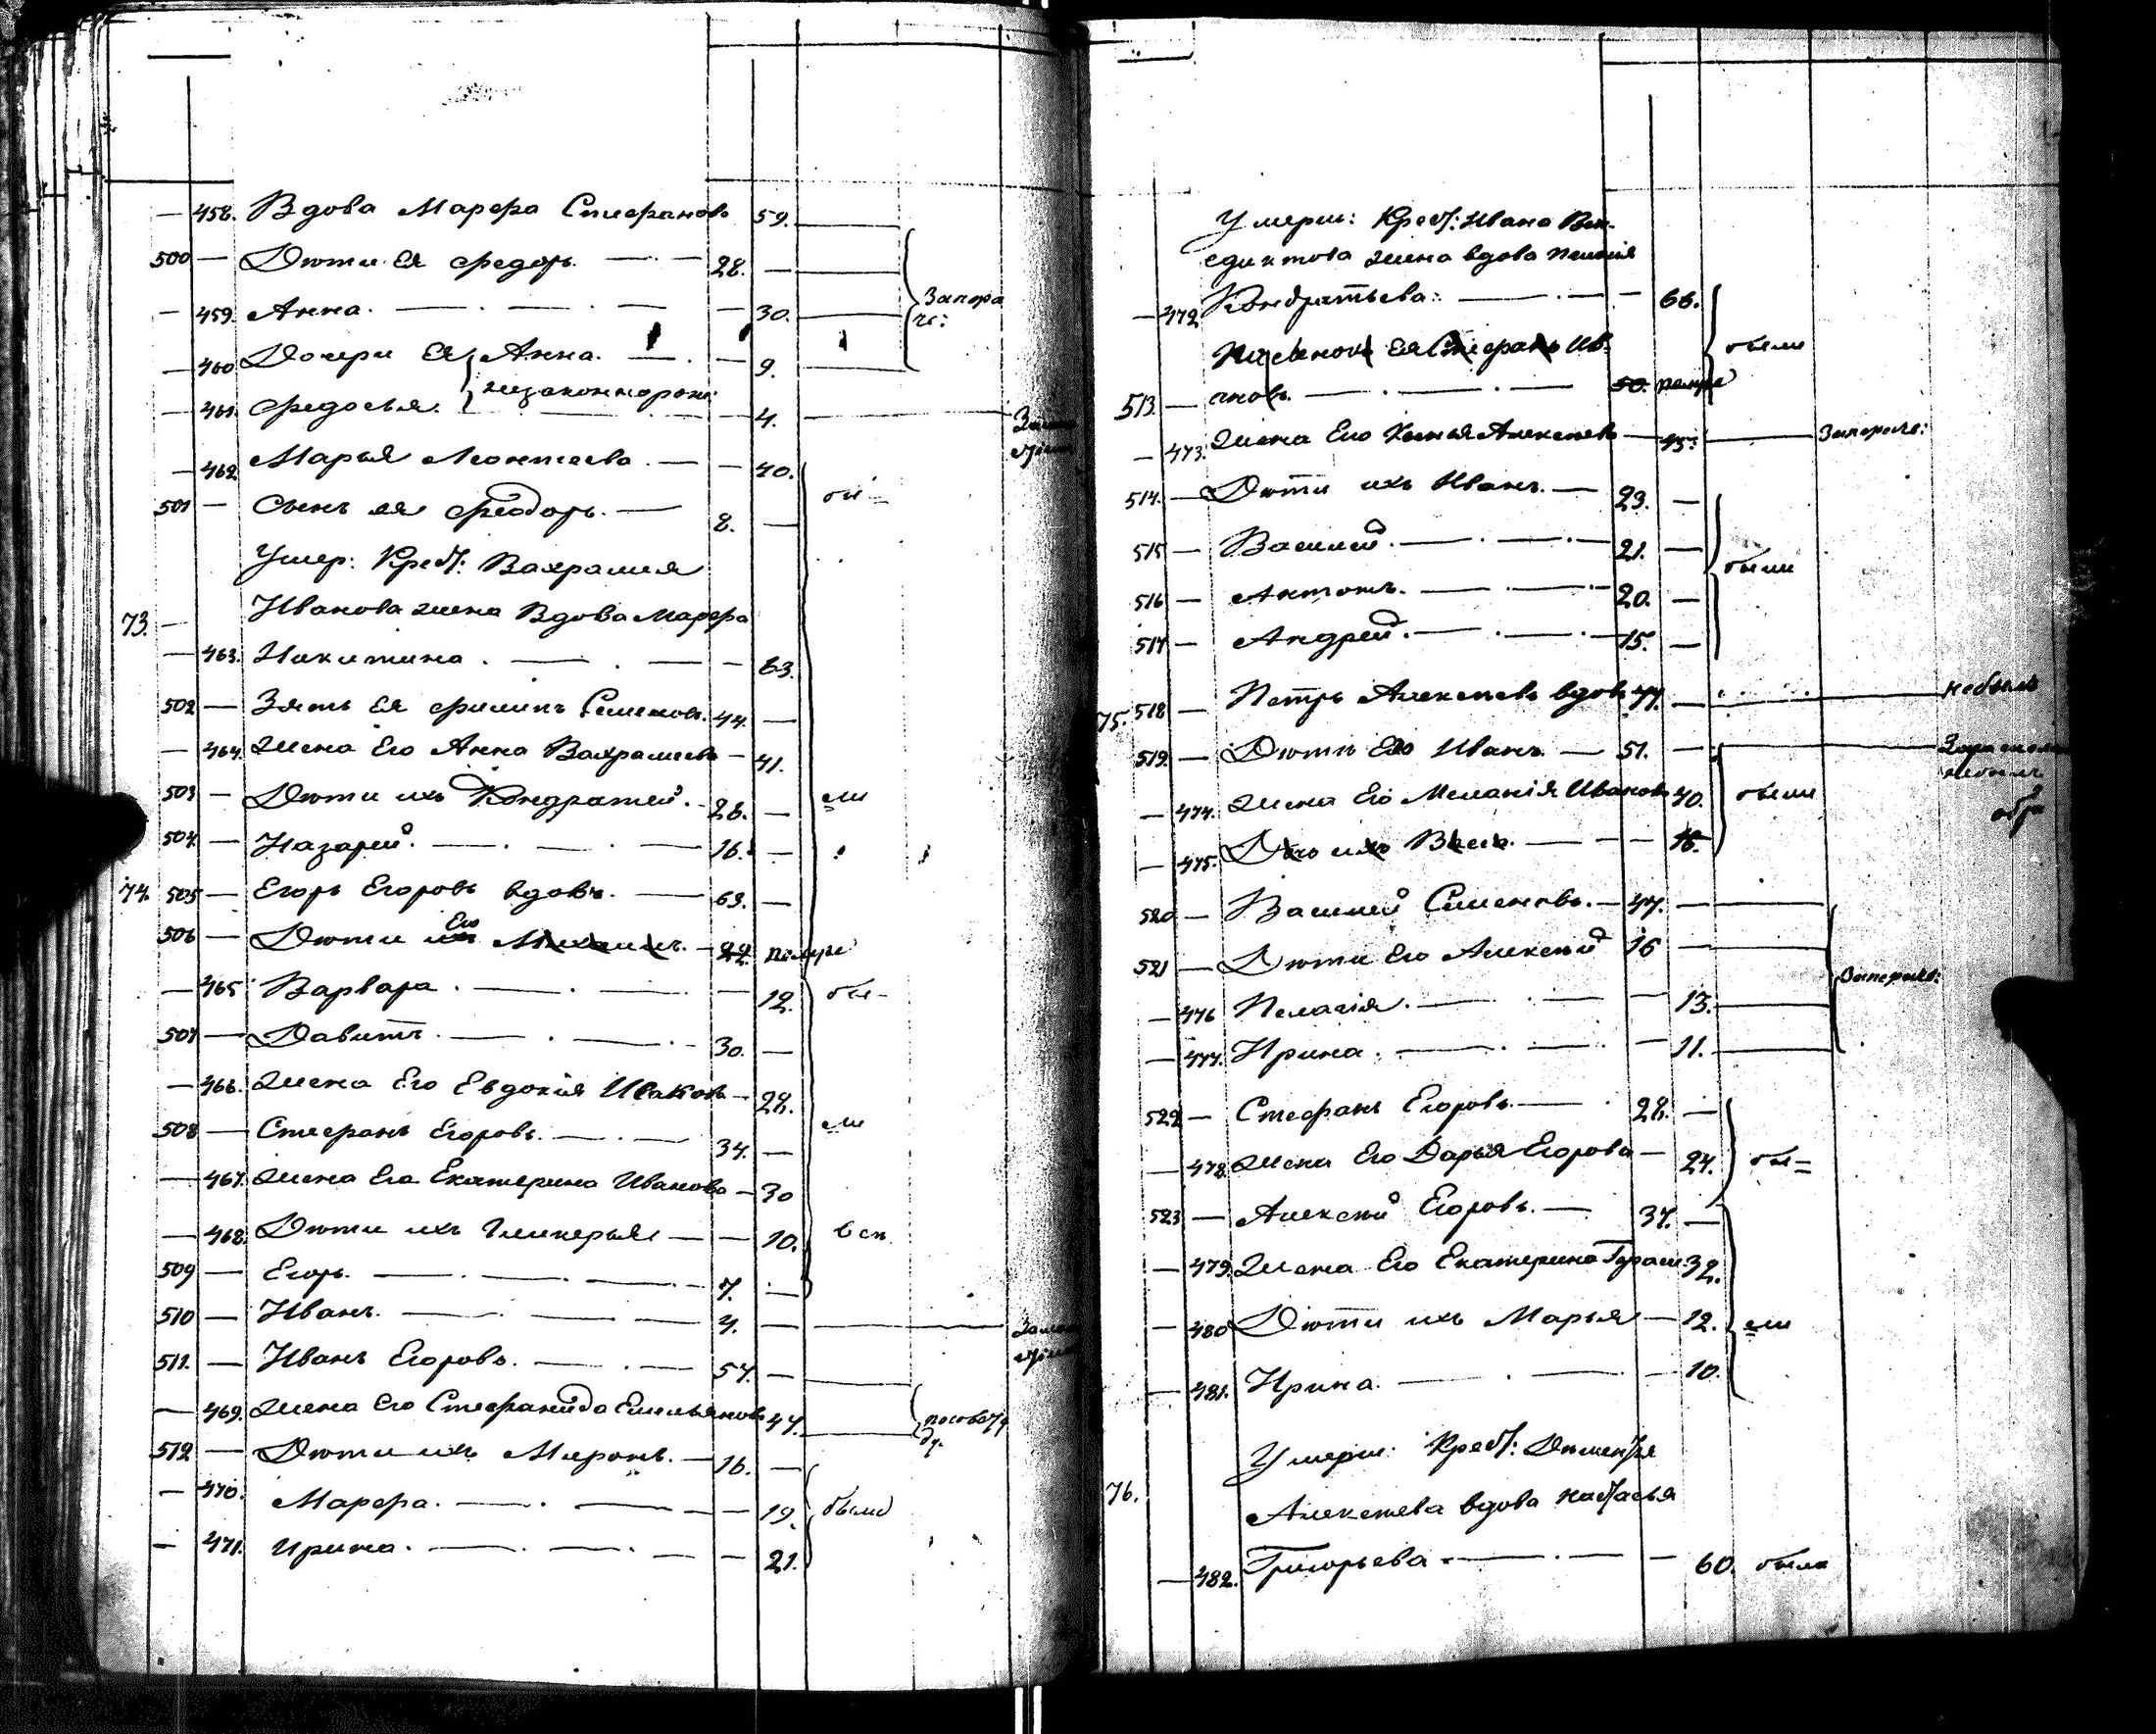 — 458. Вдова Марѳа Стефанов 59.
500 — Дѣти Ея Ѳедоръ — 28. —
— 459. Анна. — 30.
Запора
че:
— 460 Дочери Ея Анна. — 9.
незаконнорож:
— 461. Ѳедосья. — 4.
— 462. Марья Леонтьева. — 40.
бы=
501 — Сынъ ея Ѳеодоръ. — 8. —
Умер: Крест: Вахрамея
73. — Иванова жена Вдова Марѳа
— 463. Никитина. — 63.
502 — Зять Ея Филипъ Семенов. 44. —
— 464. Жена Его Анна Вахрамеев — 41.
503 — Дѣти ихъ Кондратей. — 26. — ли
504. — Назарей. — 16. —
74. 505 — Егоръ Егоровъ вдовъ. — 63. —
Его
506 — Дѣти ихъ Михаилъ. — 22. помре
— 465 Варвара. — 12. бы-
507 — Давитъ. — 30. —
— 466. Жена Его Евдокія Иванов — 28.
508 — Стефанъ Егоровъ. — 34. — ли
— 467. Жена Его Екатерина Иванова — 30
— 468. Дѣти ихъ Гликерья — 10. всѣ
509 — Егоръ. — 7. —
510 — Иванъ. — 4. —
511. — Иванъ Егоровъ. — 57. —
— 469. Жена Его Стефанида Емельянов 47.
512 — Дѣти ихъ Миронъ. — 16. —
— 470. Марѳа. — 19. были
— 471. Ирина. — 21.
Умерш: Крест: Ивана Вен-
едиктова жена вдова
— 472 Кондратьева: — 66.
были
Ея Стефанъ Ив-
513. — новъ. — 50. помре
— 473. Жена Его Ксенья Алексѣев — 45: Запороче:
514. — Дѣти ихъ Иванъ. — 23. —
515 — Василей. — 21. —
были
516 — Антонъ. — 20. —
517 — Андрей. — 15. —
75. 518 — Петръ Алексѣевъ вдовъ 77. — небылъ
519. — Дѣти Его Иванъ — 51. —
— 474. Жена Его Меланія Иванов 40. были
— 475. 16.
520 — Василей Семеновъ. — 47. —
521 — Дѣти Его Алексѣй 16 —
Запороче:
— 476 Пелагія. — 13.
— 477. Ирина. — 11.
522 — Стефанъ Егоровъ. — 28. —
— 478. Жена Его Дарья Егорова — 24. бы=
523 — Алексѣй Егоровъ. — 37. —
— 479. Жена Его Екатерина Гарас: 32.
— 480 Дѣти ихъ Марья — 12. ли
— 481. Ирина. — 10.
Умерш: Крест: Дементья
76. Алексѣева вдова Настасья
— 482. Григорьева — 60. была